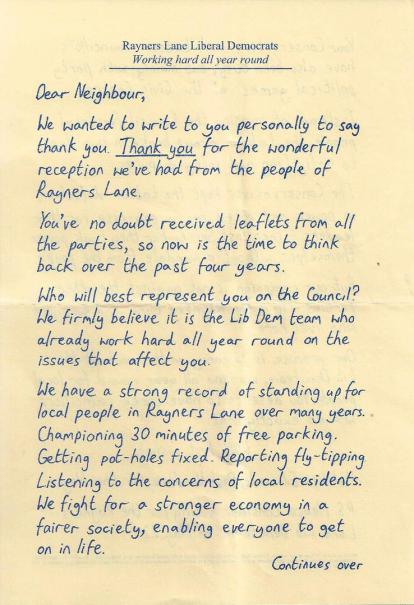 Rayners Lane Liberal Democrats
Working hard all year round
Dear Neighbour,
We wanted to write to you personally to say
thank you. Thank you for the wonderful
reception we've had from the people of
Rayners Lane.
You've no doubt received leaflets from all
the parties, so now is the time to think
back over the past four years.
Who will best represent you on the Council?
We firmly believe it is the Lib Dem team who
already work hard all year round on the
issues that affect you.
We have a strong record of standing up for
local people in Rayners Lane over many years.
Championing 30 minutes of free parking.
Getting pot-holes fixed. Reporting fly-tipping.
Listening to the concerns of local residents.
We fight for a stronger economy in a
fairer society, enabling everyone to get
on in life.
Continues over